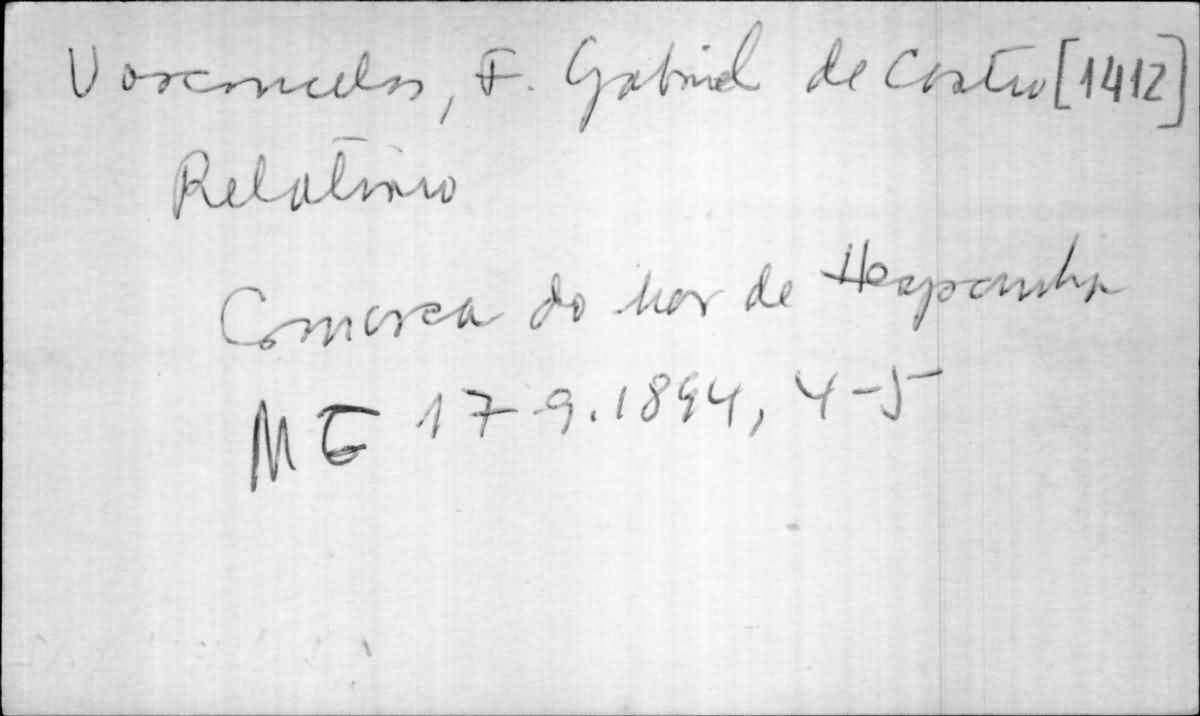 Vasconcelos, F. Gabriel de Castro [1412]
Relatório
Comarca do mar de Hespanha
M G 17-9.1894, 4-5